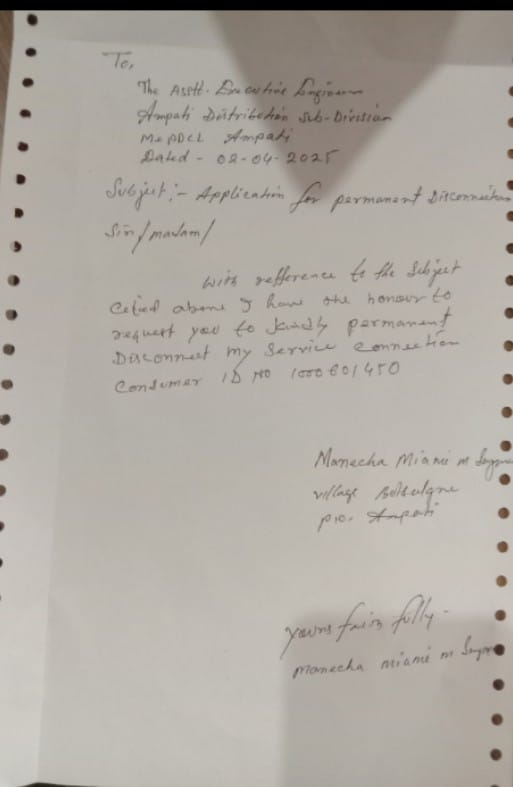 To,
The Asstt. Executive Engineer
Ampati Distribution Sub-Division
MePDCL Ampati
Dated - 02-04-2025
Subject:- Application for permanent Disconnection
Sir/madam/
With refference to the Subject
Cetied above I have the honour to
request you to kindly permanent
Disconnect my Service Connection
Consumer ID NO
Manecha Miami m
village
P.O. Ampati
yours faith fully-
Manecha miami m